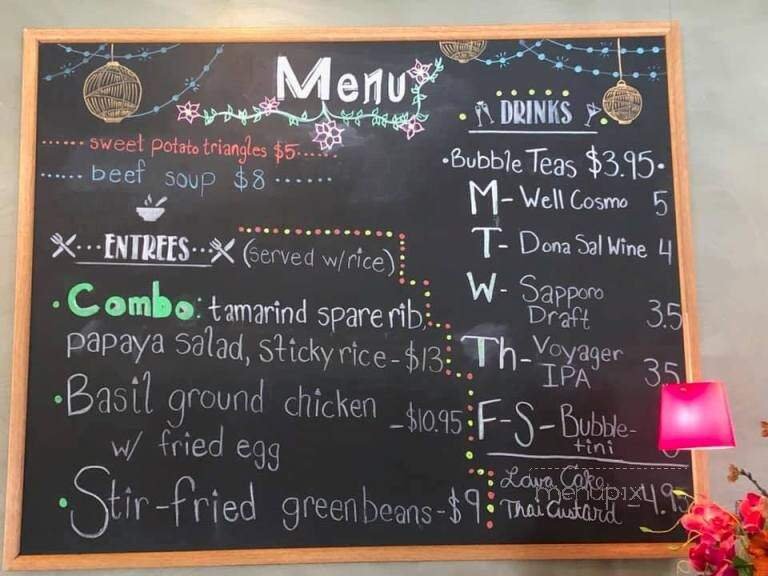 Menu
...... sweet potato triangles $5......
...... beef soup $8 ......
...ENTREES... (served w/rice)
• Combo: tamarind spare rib,
papaya salad, sticky rice - $13
• Basil ground chicken - $10.95
w/ fried egg
• Stir-fried green beans - $9
DRINKS
• Bubble Teas $3.95 •
M - Well Cosmo 5
T - Dona Sal Wine 4
W - Sapporo
Draft 3.5
Th - Voyager
IPA 3.5
F-S - Bubble-
tini
Lava Cake
Thai Custard - 4.95
menupix